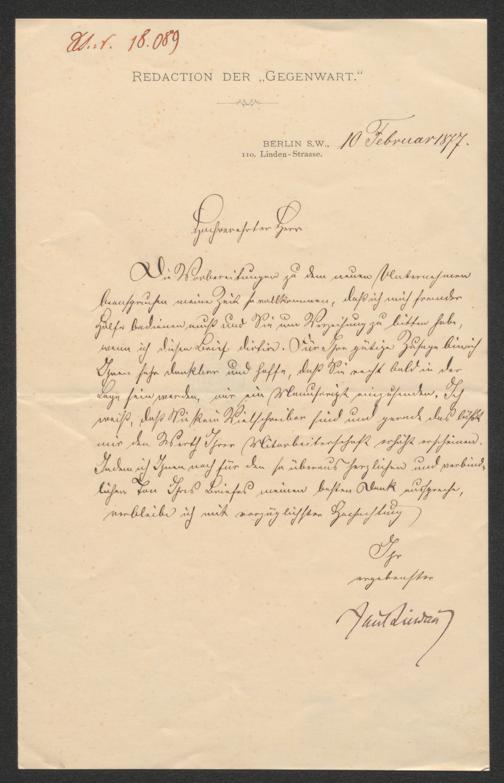 18.089
REDACTION DER „GEGENWART.“
BERLIN S.W., 10 Februar 1877.
110, Linden-Strasse.
Hochverehrter Herr
Die Vorbereitungen zu dem neuen Unternehmen
beanspruchen meine Zeit so vollkommen, daß ich mich fremder
Hülfe bedienen muß und Sie um Verzeihung zu bitten habe,
wenn ich diesen Brief dictire. Für Ihre gütige Zusage bin ich
Ihnen sehr dankbar und hoffe, daß Sie recht bald in der
Lage sein werden, mir ein Manuscript einzusenden. Ich
weiß, daß Sie kein Vielschreiber sind und gerade das läßt
mir den Werth Ihrer Mitarbeiterschaft erhöht erscheinen.
Indem ich Ihnen noch für den so überaus herzlichen und verbind-
lichen Ton Ihres Briefes meinen besten Dank ausspreche,
verbleibe ich mit vorzüglichster Hochachtung
Ihr
ergebenster
Paul Lindau